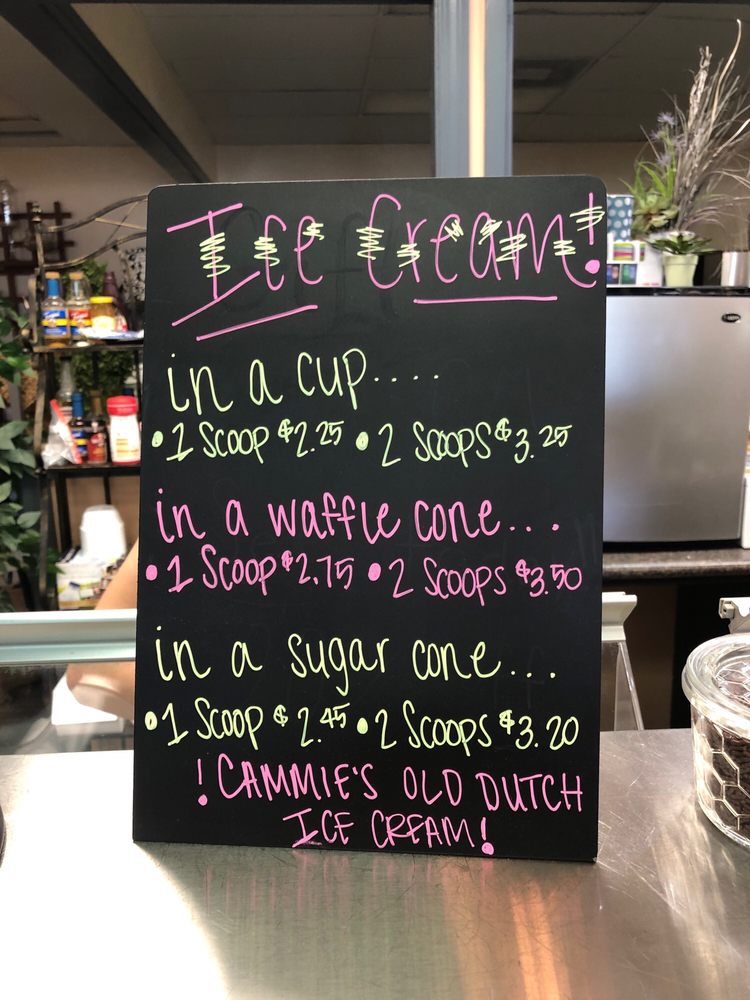 Ice Cream!
in a cup....
• 1 Scoop $2.25 • 2 Scoops $3.25
in a waffle cone...
• 1 Scoop $2.75 • 2 Scoops $3.50
in a sugar cone...
• 1 Scoop $2.45 • 2 Scoops $3.20
! CAMMIE'S OLD DUTCH
ICE CREAM!